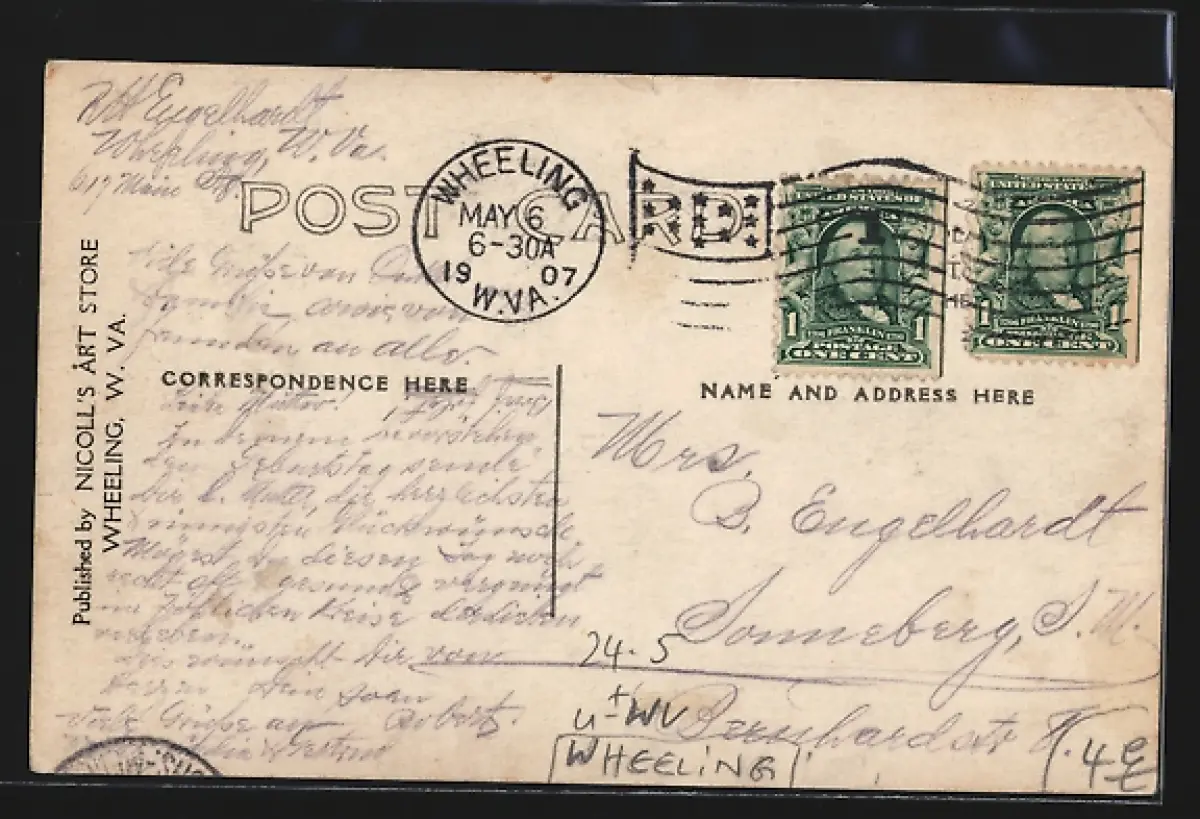 R H Engelhardt
Wheeling, W. Va.
617 Main Str.
POST CARD
WHEELING
MAY 6
6-30A
1907
W.VA.
UNITED STATES OF
AMERICA
1 FRANKLIN 1
POSTAGE
ONE CENT
UNITED STATES
AMERICA
1 FRANKLIN 1
ONE CENT
Published by NICOLL'S ART STORE
WHEELING, W. VA.
Viele Grüße von
Familie sowie von
Freunden an alle.
CORRESPONDENCE HERE
NAME AND ADDRESS HERE
Liebe Mutter!
Zu deinem
den Geburtstag sende
dir l. Mutter, die herzlichsten
innigsten Glückwünsche
Mögest du diesen Tag noch
recht oft gesund & vergnügt
im Kreise
verleben.
Dies wünscht Dir von
Herzen Dein Sohn
Robert.
Viele Grüße an
Mrs.
B. Engelhardt
Sonneberg, S. M.
Bernhardstr
24.5
u-WV
WHEELING
4